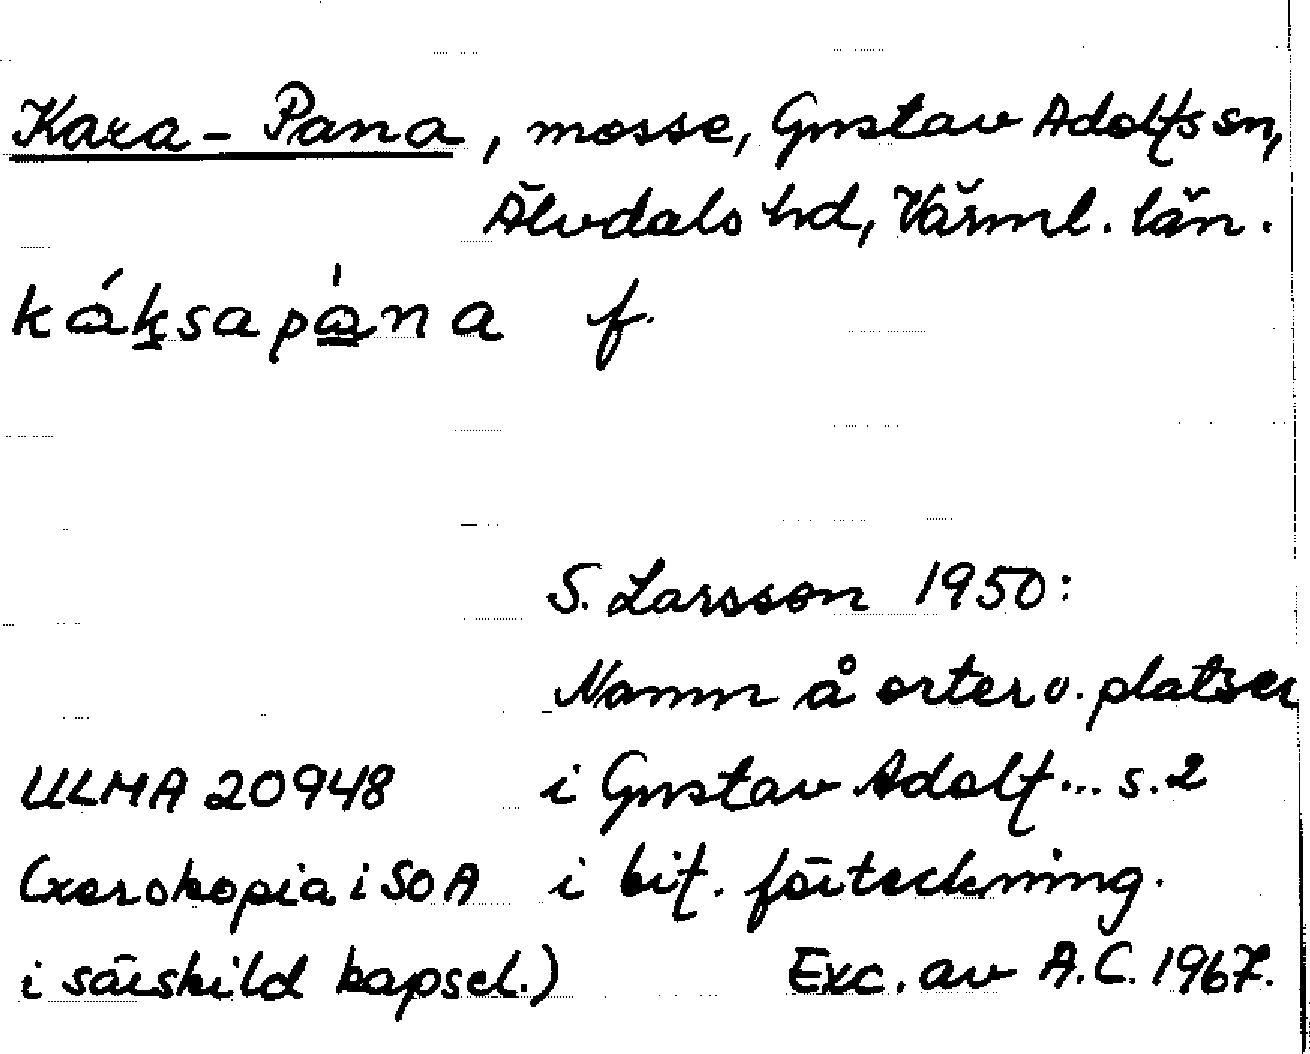 Kaxa-Pana, mosse, Gustav Adolfs sn,
Älvdals hd, Värml. län.
kák̲sapà̲na f.
S. Larsson 1950:
Namn å orter o. platser
ULMA 20948 i Gustav Adolf... s. 2
(xerokopia i SOA i bif. förteckning.
i särskild kapsel.) Exc. av A.C. 1967.